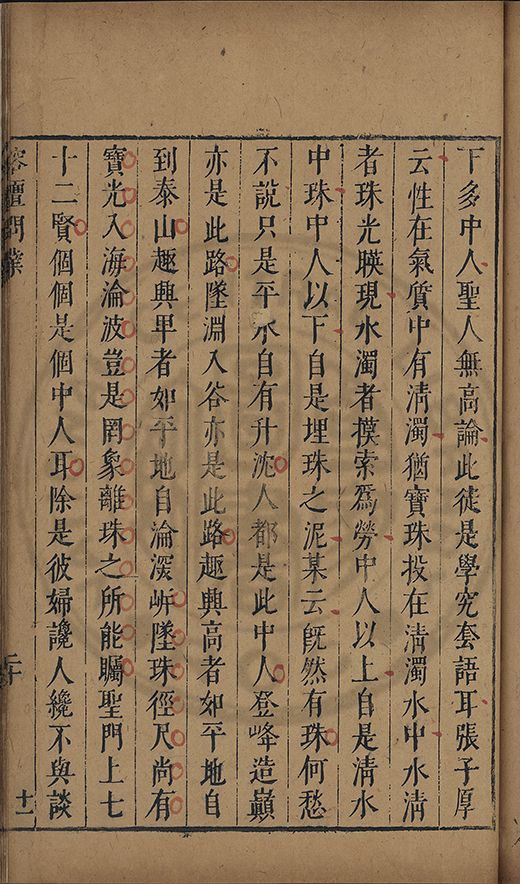 下多中人聖人無高論此徒是學究套語耳張子厚
云性在氣質中有清濁猶寶珠投在清濁水中水清
者珠光暎現水濁者摸索爲勞中人以上自是清水
中珠中人以下自是埋珠之泥某云旣然有珠何愁
不說只是平水自有升沈人都是此中人登峰造巔
亦是此路墜淵入谷亦是此路趣興高者如平地自
到泰山趣興卑者如平地自淪深岍墜珠徑尺尚有
寶光入海淪波豈是罔象離珠之所能矚聖門上七
十二賢個個是個中人耳除是彼婦讒人纔不與談
榕壇問業
十一